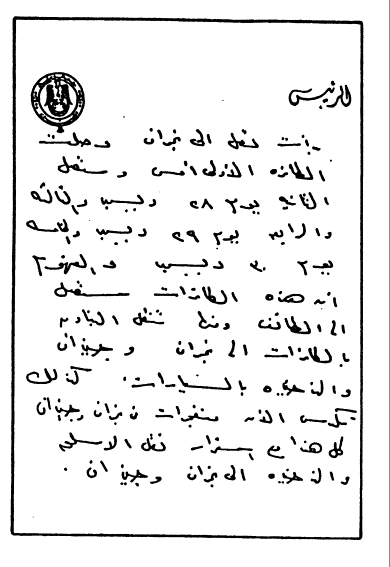 الرئيس
بدأت تنقل الى نجران وصلت
الطائرة الاولى امس وستصل
الثانية يوم ٢٨ ديسمبر والثالثة
والرابعة يوم ٢٩ ديسمبر والخامسة
يوم ٣٠ ديسمبر والمفهوم
انه هذه الطائرات ستصل
الى الطائف ومنها تنقل البنادق
بالطائرات الى نجران وجيزان
والذخيرة بالسيارات. كذلك
تكدس الآن متفجرات في نجران وجيزان
كل هذا مع استمرار نقل الاسلحة
والذخيرة الى نجران وجيزان.